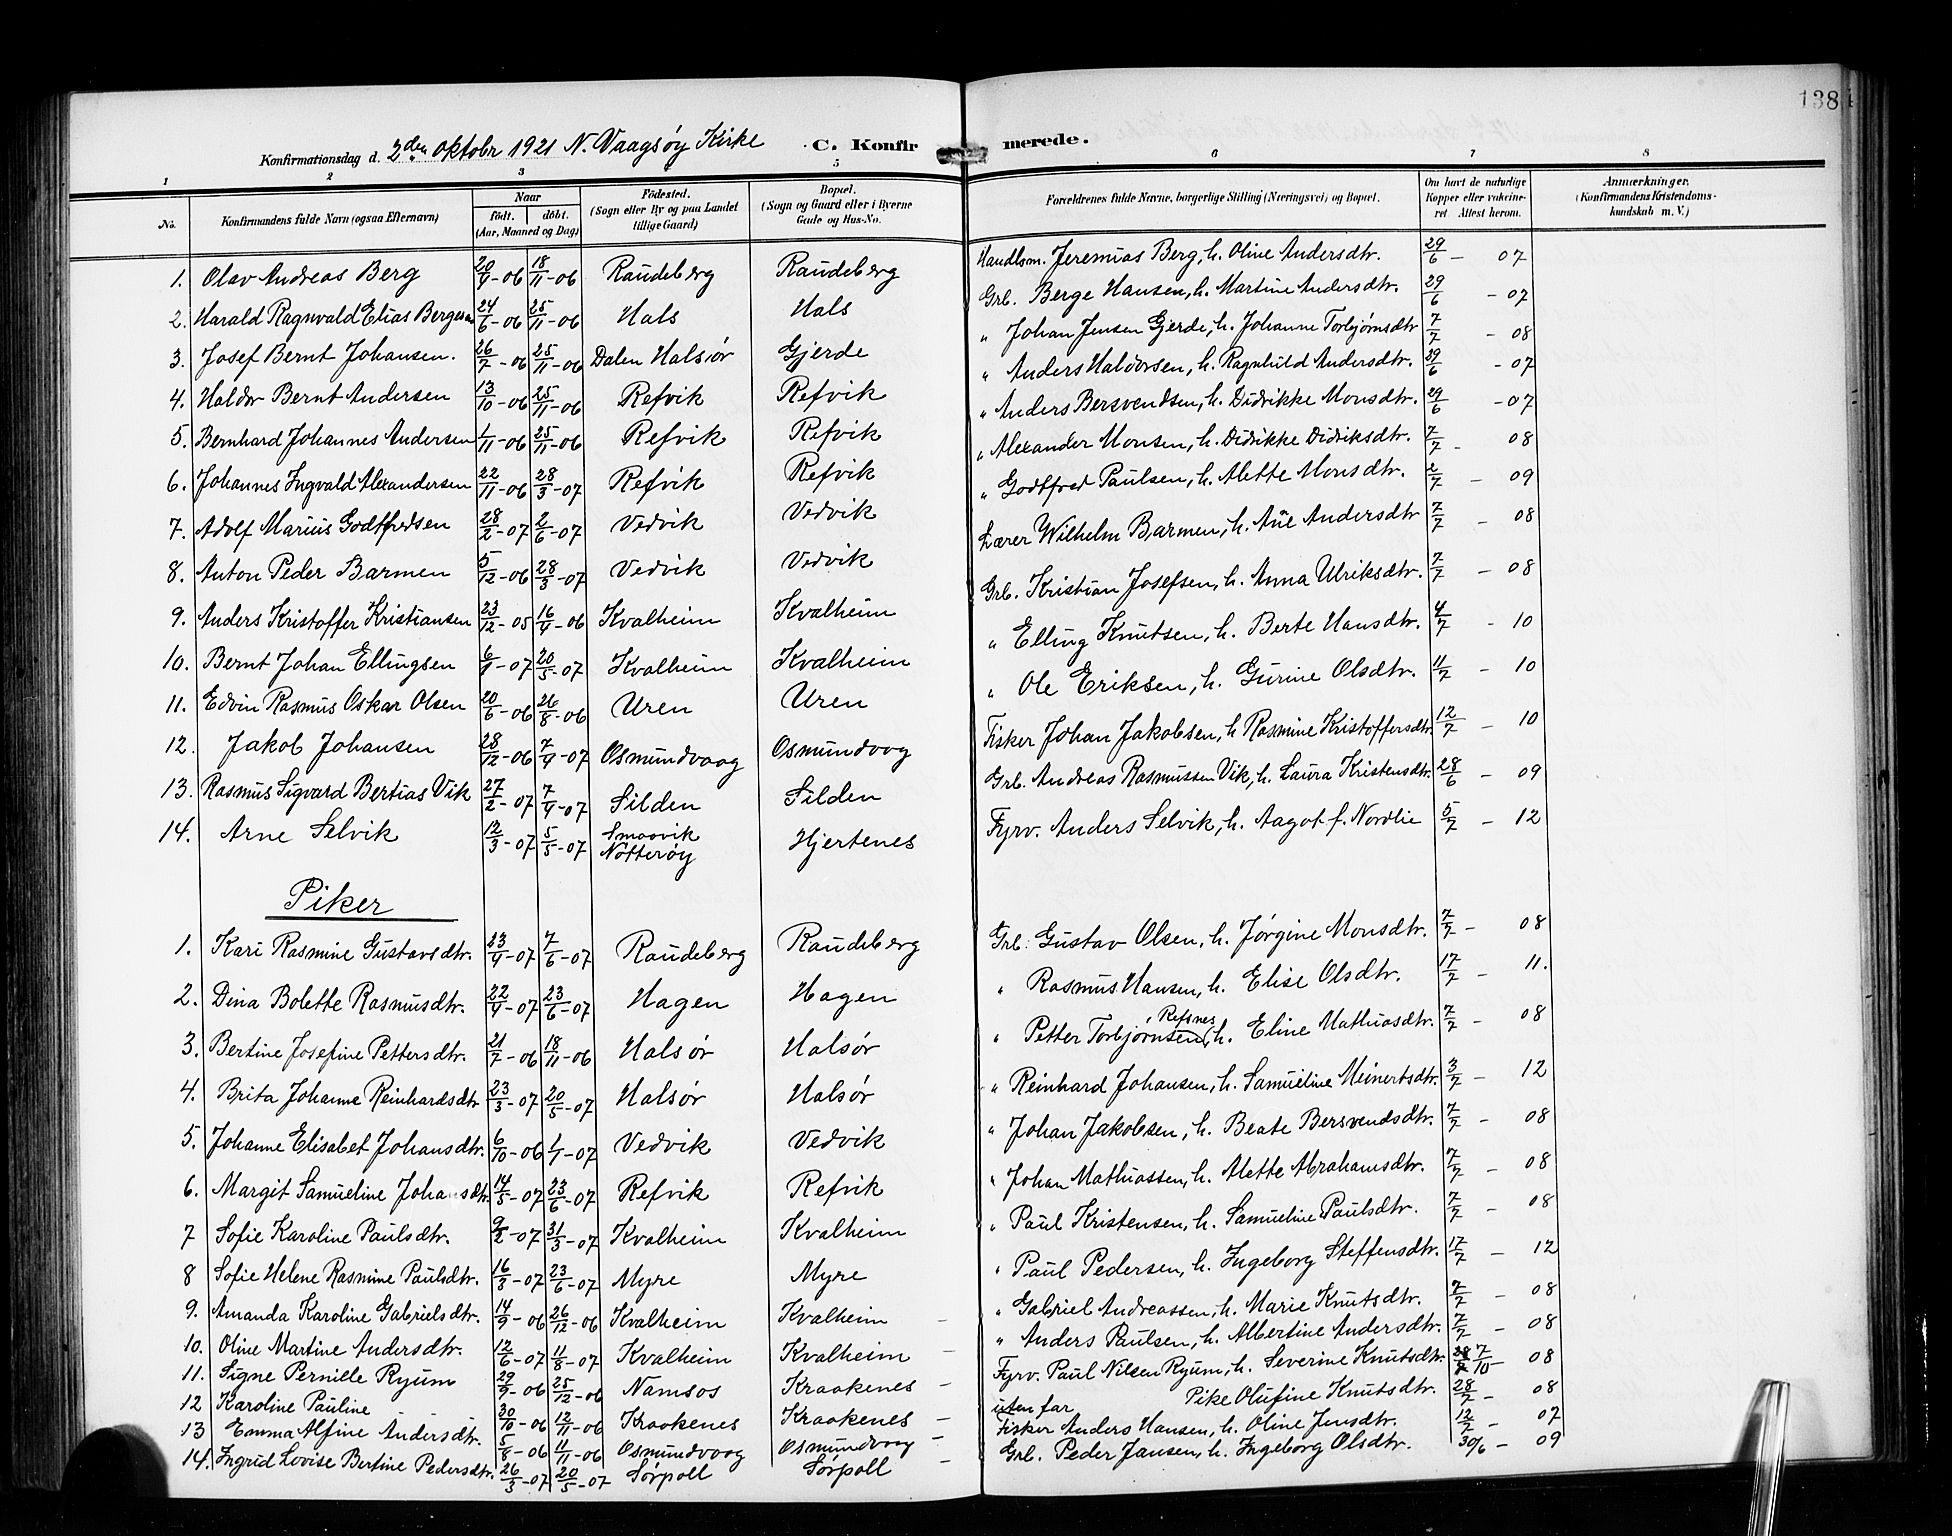 138
Konfirmationsdag d. 2den oktobr 1921 N. Vaagsøy Kirke C. Konfirmerede.
1 2 3 4 5 6 7 8
No. Konfirmandens fulde Navn (ogsaa Efternavn) Naar født. døbt. (Aar, Maaned og Dag) Fødested. (Sogn eller By og paa Landet tillige Gaard) Bopæl. (Sogn og Gaard eller i Byerne Gade og Hus-No. Forældrenes fulde Navne, borgerlige Stilling (Næringsvei) og Bopæl. Om havt de naturlige Kopper eller vakcineret Attest herom. Anmærkninger. (Konfirmandens Kristendomskundskab m. V.)
1. Olav Andreas Berg 20/9-06 18/11-06 Raudeberg Raudeberg Handlsm. Jeremias Berg, h. Oline Andersdtr. 29/6 - 07
2. Harald Ragnvald Elias Bergesen 24/6-06 25/11-06 Hals Hals Grb. Berge Hansen, h. Martine Andersdtr. 29/6 - 07
3. Josef Bernt Johansen. 26/7-06 25/11-06 Dalen Halsør Gjerde " Johan Jensen Gjerde, h. Johanne Torbjørnsdtr 7/7 - 08
4. Haldor Bernt Andersen 13/10-06 25/11-06 Refvik Refvik " Anders Haldorsen, h. Ragnhild Andersdtr. 29/6 - 07
5. Bernhard Johannes Andersen 1/11-06 25/11-06 Refvik Refvik " Anders Bersvendsen, h. Didrikke Monsdtr. 29/6 - 07
6. Johannes Ingvald Alexandersen 22/11-06 28/3-07 Refvik Refvik " Alexander Monsen, h. Didrikke Didriksdtr. 7/7 - 08
7. Adolf Marius Godtfredsen 28/2-07 2/6-07 Vedvik Vedvik " Godtfred Paulsen, h. Alette Monsdtr. 2/7 - 09
8. Anton Peder Barmen 5/12-06 28/3-07 Vedvik Vedvik Lærer Wilhelm Barmen, h. Aue Andersdtr 7/7 - 08
9. Anders Kristoffer Kristiansen 23/12-05 16/4-06 Kvalheim Kvalheim Grb. Kristian Josefsen, h. Anna Ulriksdtr. 7/7 - 08
10. Bernt Johan Ellingsen 6/1-07 20/5-07 Kvalheim Kvalheim " Elling Knutsen, h. Berte Hansdtr. 4/7 - 10
11. Edvin Rasmus Oskar Olsen 20/6-06 26/8-06 Uren Uren " Ole Eriksen, h. Gurine Olsdtr. 11/7 - 10
12. Jakob Johansen 28/12-06 7/4-07 Osmundvaag Osmundvog Fisker Johan Jakobsen, h Rasmine Kristoffersdtr 12/7 - 10
13. Rasmus Sigvard Bertias Vik 27/2-07 7/4-07 Silden Silden Grb. Andreas Rasmussen Vik, h. Laura Kristensdtr. 28/6 - 09
14. Arne Selvik 12/3-07 5/5-07 Smaavik Nøtterøy Hjertenes Fyrv. Anders Selvik, h. Aagot f. Nordlie 5/7 - 12
Piker
1. Kari Rasmine Gustavsdtr. 23/4-07 7/6-07 Raudeberg Raudeberg Grb: Gustav Olsen, h. Jørgine Monsdtr. 7/7 - 08
2. Dina Bolette Rasmusdtr. 22/4-07 23/6-07 Hagen Hagen " Rasmus Hansen, h. Elise Olsdtr. 17/7 - 11.
3. Bertine Josefine Pettersdtr. 21/7-06 18/11-06 Halsør Halsør " Petter Torbjørnsen, Refsnes h. Eline Mathiasdtr. 7/7 - 08
4. Brita Johanne Reinhardsdtr 23/3-07 20/5-07 Halsør Halsør " Reinhard Johansen, h. Samueline Meinertsdtr. 3/7 - 12
5. Johanne Elisabet Johansdtr. 6/10-06 1/1-07 Vedvik Vedvik " Johan Jakobsen, h. Beate Bersvendsdtr. 7/7 - 08
6. Margit Samueline Johansdtr. 14/5-07 23/6-07 Refvik Refvik " Johan Mathiassen, h. Alette Abrahamsdtr. 7/7 - 08
7 Sofie Karoline Paulsdtr. 9/2-07 31/3-07 Kvalheim Kvalheim " Paul Kristensen, h. Samueline Paulsdtr. 7/7 - 08
8 Sofie Helene Rasmine Paulsdtr. 16/3-07 23/6-07 Myre Myre " Paul Pedersen, h. Ingeborg Steffensdtr. 17/7 - 12
9. Amanda Karoline Gabrielsdtr. 14/9-06 26/12-06 Kvalheim Kvalheim " Gabriel Andreassen, h. Marie Knutsdtr. 7/7 - 08
10. Oline Martine Andersdtr. 12/6-07 11/8-07 Kvalheim Kvalheim " Anders Paulsen, h. Albertine Andersdtr. 7/7 - 08
11. Signe Pernille Ryum 29/9-06 25/12-06 Namsos Kraakenes Fyrv. Paul Nilsen Ryum, h. Severine Knutsdtr. 7/10 - 08
12 Karoline Pauline 30/10-06 12/11-06 Kraakenes Kraakenes far Pike Olufine Knutsdtr. 28/7 - 08
13 Emma Alfine Andersdtr. 5/8-06 11/11-06 Osmundvaag Osmundvog Fisker Anders Hansen, h. Oline Jensdtr. 12/7 - 07
14. Ingrid Lovise Bertine Pedersdtr. 26/3-07 20/5-07 Sørpoll Sørpoll Grb. Peder Jansen, h. Ingeborg Olsdtr. 30/6 - 09